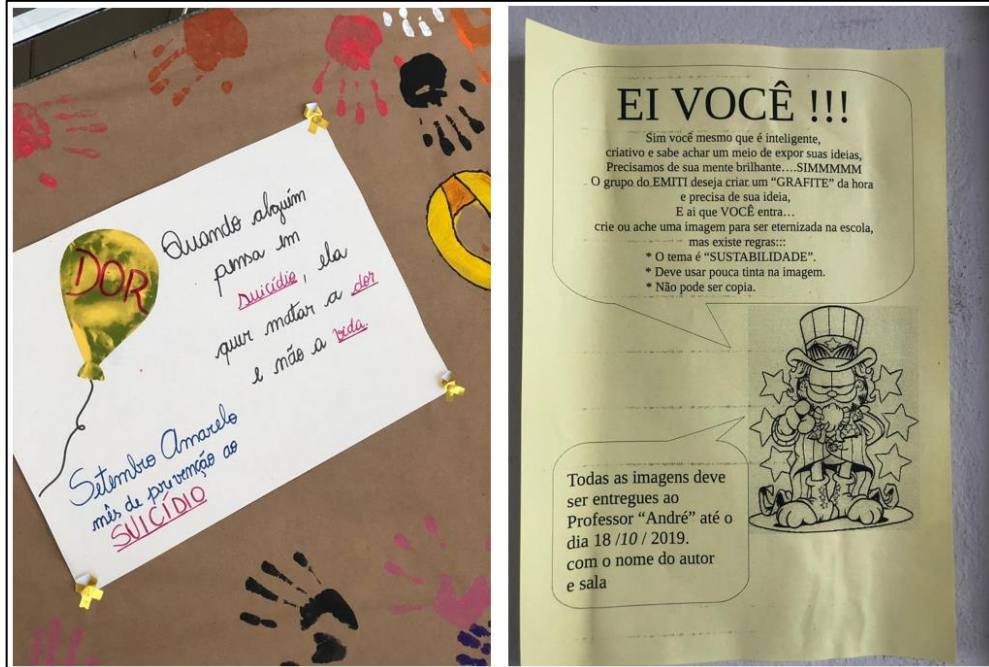 DOR
Quando alguém
pensa em
suicídio, ela
quer matar a dor
e não a vida.
Setembro Amarelo
mês de prevenção ao
SUICÍDIO
EI VOCÊ !!!
Sim você mesmo que é inteligente,
criativo e sabe achar um meio de expor suas ideias,
Precisamos de sua mente brilhante....SIMMMMM
O grupo do EMITI deseja criar um “GRAFITE” da hora
e precisa de sua ideia,
E ai que VOCÊ entra…
crie ou ache uma imagem para ser eternizada na escola,
mas existe regras:::
* O tema é “SUSTABILIDADE”.
* Deve usar pouca tinta na imagem.
* Não pode ser copia.
Todas as imagens deve
ser entregues ao
Professor “André” até o
dia 18 /10 / 2019.
com o nome do autor
e sala